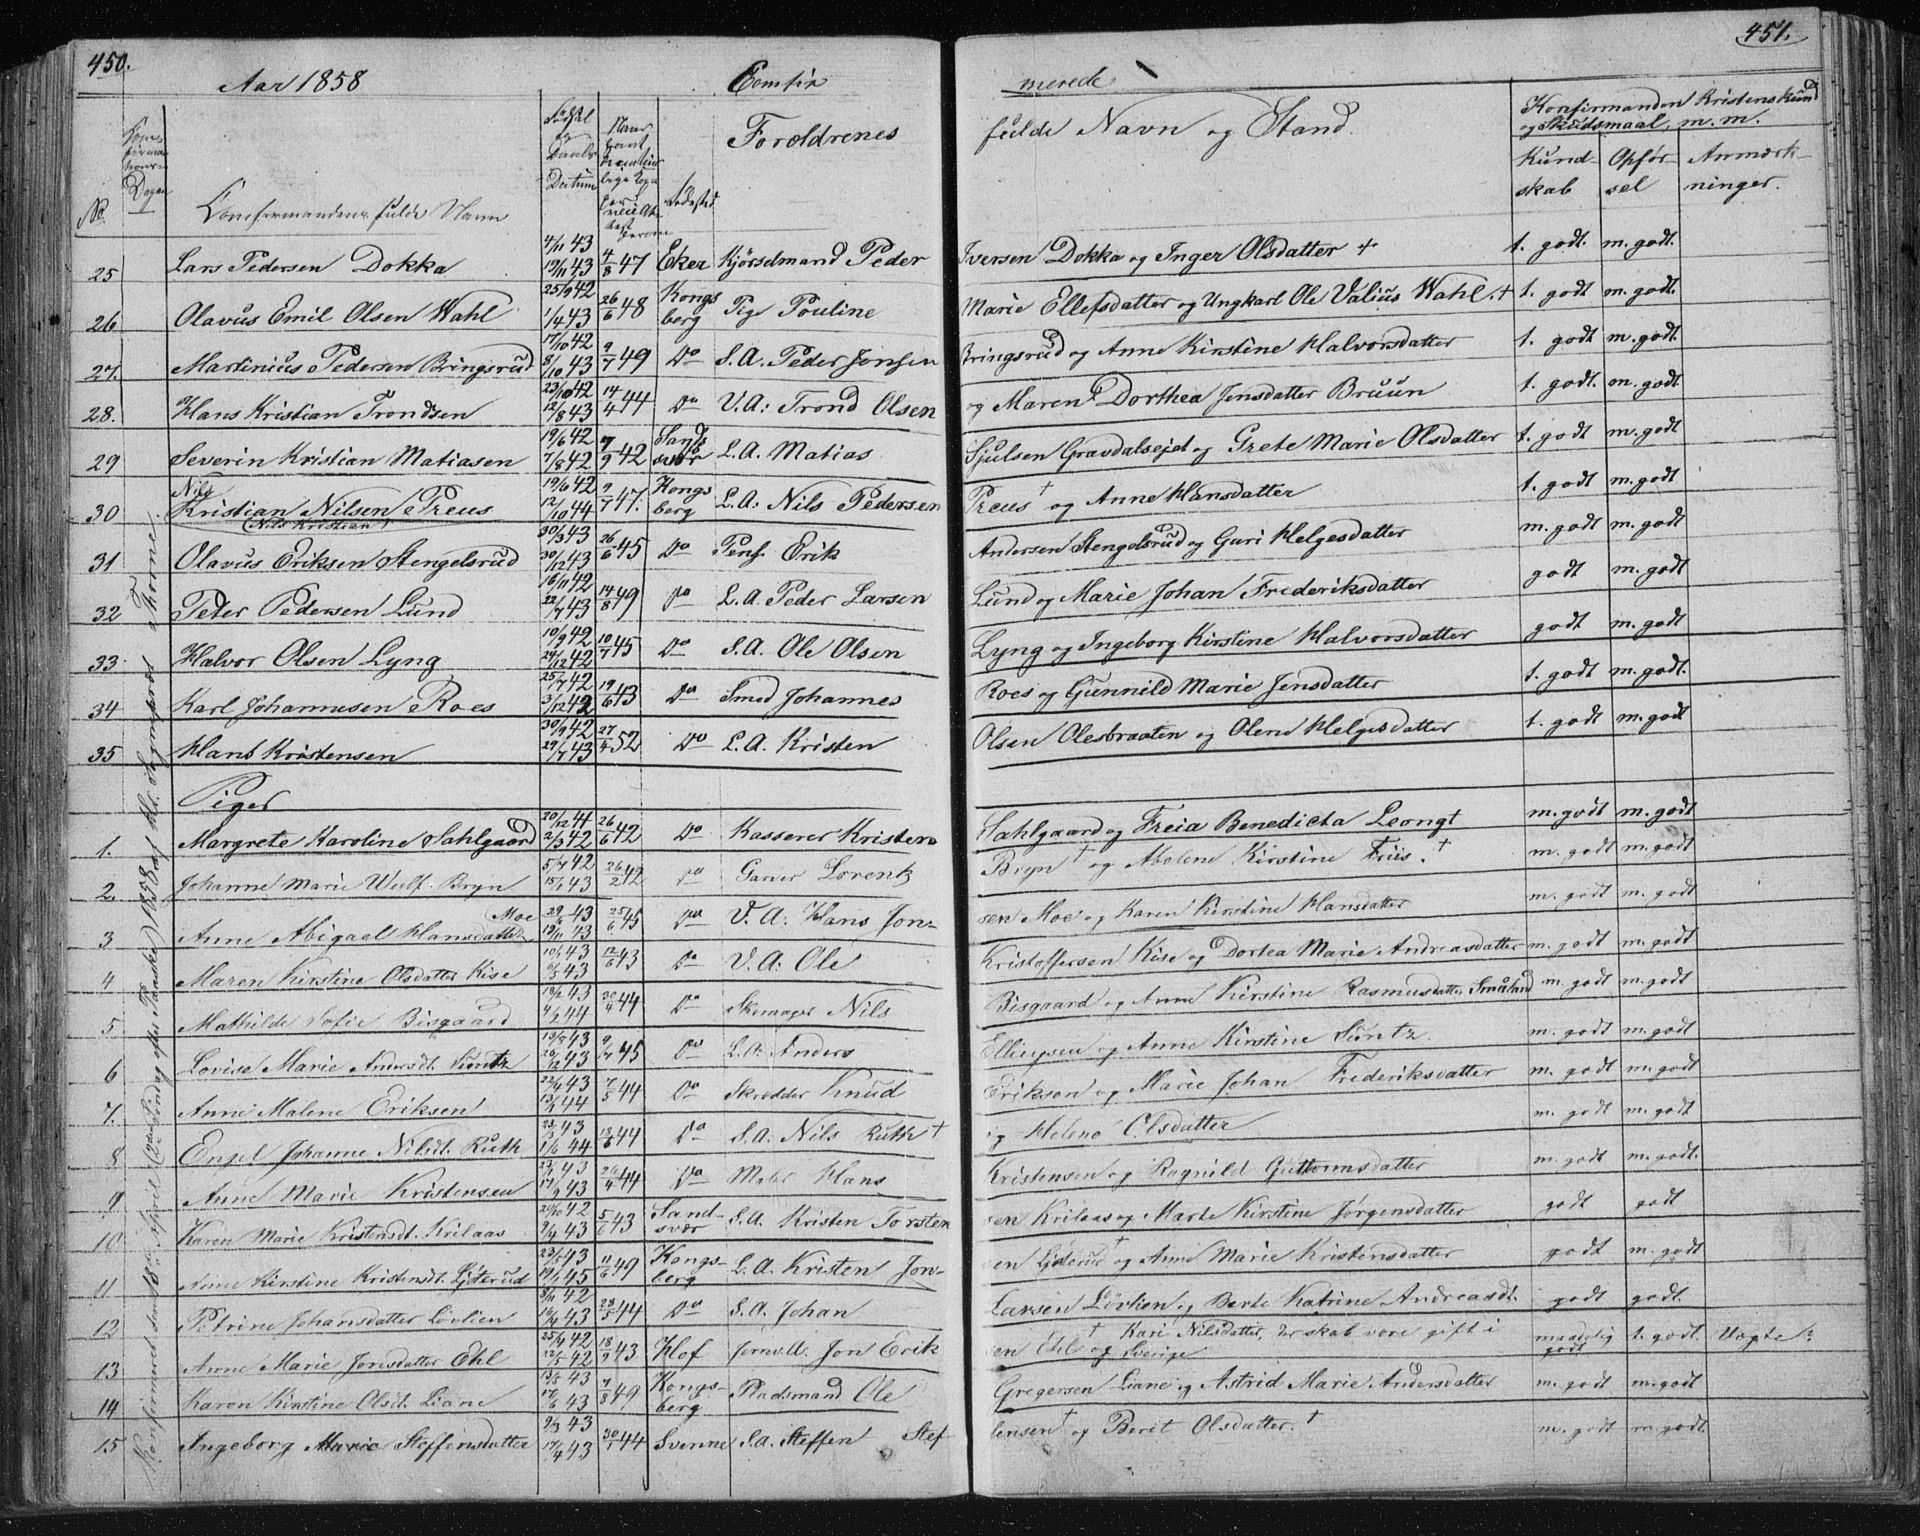 450.
451.
Aar 1858 Comfir merede
No Dagen
Confirmandens fulde Navn
Datum
Fødested
Forældrenes fulde Navn og Stand.
Konfirmanden Kristenskund
og Skudsmaal, m. m.
Kund- Opfør- Anmærk-
skab sel ninger.
25 Lars Pedersen Dokka 4/11 43 19/11 43 4/8 47 Eker Kjørselmand Peder Iversen Dokka og Inger Olsdatter + t. godt. m. godt.
26 Olavus Emil Olsen Wahl 25/9 42 1/4 43 26/6 48 Kongsberg Pige Pouline Marie Ellefsdatter og Ungkarl Ole Valius Wahl. + t. godt m. godt.
27. Martinius Pedersen Bringsrud 17/10 42 8/10 43 9/7 49 Do S. A. Peder Jonsen Bringsrud og Anne Kirstine Halvorsdatter t. godt m. godt.
28. Hans Kristian Trondsen 23/10 42 12/8 43 14/4 44 Do V. A: Trond Olsen og Maren Dorthea Jensdatter Bruun t. godt. m. godt
29 Severin Kristian Matiasen 19/6 42 7/8 42 7/9 42 Sandsvær L. A. Matias Sjulsen Gravdalsejet og Grete Marie Olsdatter t. godt m. godt
30 Nils Kristian Nilsen Preus (Nils Kristian) 19/6 42 12/10 44 9/7 47. Kongsberg L. A: Nils Pedersen Preus + og Anne Hansdatter t. godt m. godt
31 Olavus Eriksen Stengelsrud 30/3 43 30/12 43 26/6 45 Do Pens. Erik Andersen Stengelsrud og Guri Helgesdatter m. godt m. godt
32 Peter Pedersen Lund 16/11 42 22/7 43 14/8 49 Do L. A. Peder Larsen Lund og Marie Johan Frederiksdatter godt m. godt
33. Halvor Olsen Lyng 10/9 42 24/12 42 10/7 45 Do S. A. Ole Olsen Lyng og Ingeborg Kirstine Halvorsdatter godt m. godt
34 Karl Johannusen Roes 25/7 42 3/12 42 19/6 43 Do Smed Johannes Roes og Gunnild Marie Jensdatter t. godt m. godt.
35 Hans Kristensen 30/9 42 29/7 43 27/4 52 Do L. A. Kristen Olsen Olesbraaten og Olene Helgesdatter t. godt m. godt
Piger
1. Margrete Karoline Sahlgaard 20/12 41 2/3 42 26/6 42 Do Kasserer Kristen Sahlgaard og Freia Benedicta Leongt m. godt m. godt
2. Johanne Marie Wulf Bryn 5/7 42 15/1 43 26/2 42 Do Garver Lorentz Bryn + og Malene Kirstine Friis. + m. godt m. godt
3 Anne Abigael Hansdatter Moe 43 43 25/6 45 Do V. A: Hans Jonsen Moe og Karen Kirstine Hansdatter m. godt m. godt
4 Maren Kirstine Olsdatter Kise 10/1 43 43 12/6 43 Do V. A: Ole Kristoffersen Kise og Dortea Marie Andreasdatter m. godt m. godt
5 Mathilde Sofie Bisgaard 43 44 44 Do Skomager Nils Bisgaard og Anne Kirstine Rasmusdatter Småland m. godt m. godt
6 Lovise Marie Andersdt. Suntz 43 43 45 Do L. A: Anders Ellingsen og Anne Kirstine Suntz m. godt m. godt
7. Anne Malene Eriksen 43 44 44 Do Skredder Knud Eriksen og Marie Johan Frederiksdatter m. godt m. godt
8 Engel Johanne Nilsdt. Ruth 43 1/6 44 44 Do S. A. Nils Ruth + og Helene Olsdatter m. godt m. godt
9 Anne Marie Kristensen 43 43 44 Do Maler Hans Kristensen og Ragnild Guttormsdatter m. godt m. godt.
10 Karen Marie Kristensdt. Krilaas 42 43 5/6 43 Sandsvær S. A. Kristen Torstensen Krilaas og Marte Kirstine Jørgensdatter godt godt
11 Anne Kirstine Kristensdt. Ljøterud 43 45 11/6 49 Kongsberg L. A. Kristen Jonsen Ljøterud + og Anne Marie Kristensdatter godt m. godt
12 Petrine Johansdatter Løvlien 8/11 42 43 44 Do S. A. Johan Larsen Løvlien og Berte Katrine Andreasdt. godt godt.
13 Anne Marie Jonsdatter Ehl 42 42 43 Hof Jernv. A. Jon Eriksen Ehl + og Kari Nilsdatter, der skal være gift i Sverige maadelig godt t. godt. Uægte?
14 Karen Kirstine Olsdt. Liane 43 43 7/8 49 Kongsberg Pladsmand Ole Gregersen Liane og Astrid Marie Andersdatter m. godt m. godt
15 Ingeborg Marie Steffensdatter 43 43 44 Svenne S. A. Steffen Steffensen + og Berit Olsdatter. + m. godt m. godt.